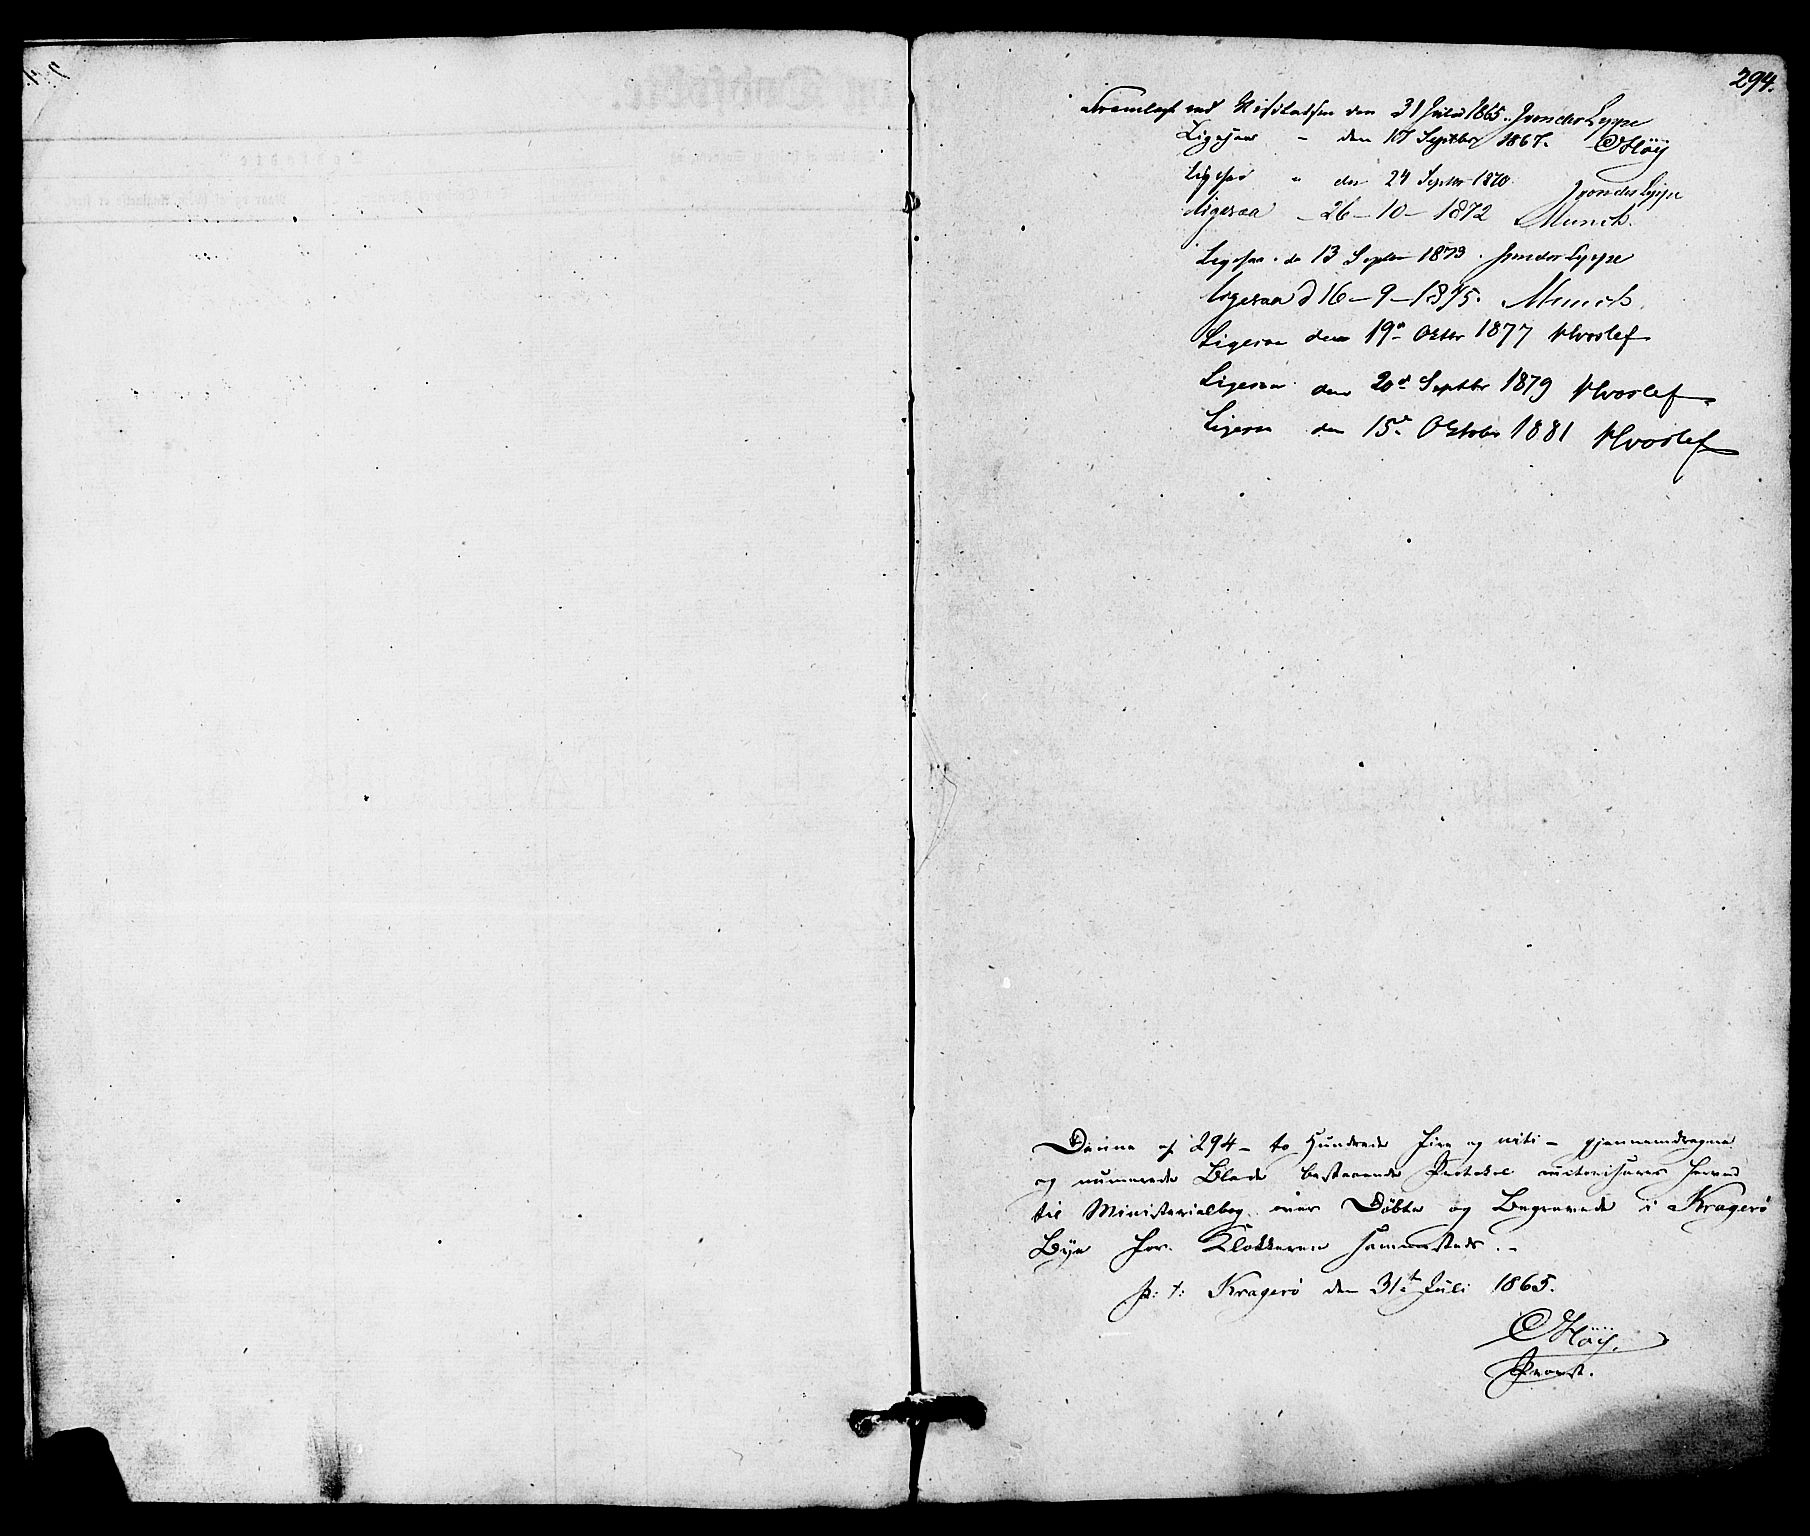 294.
Fremlagt ved Visitatsen den 31 Juli 1865. J von der Lippe
Ligesaa - den 17 Septbr 1867. O Höÿ
Ligesaa " den 24 Septbr 1870. J von der Lippe
Ligesaa - 26 - 10 - 1872 Munch.
Ligesaa - de 13 Septbr 1873. J von der Lippe
Ligesaa d 16 - 9 - 1875. Munch.
Ligesaa den 19de Oktbr 1877 Hvoslef
Ligesaa den 20de Septbr 1879 Hvoslef
Ligesaa den 15de Oktober 1881 Hvoslef
Denne af 294 - to Hundrede fire og niti - gjennemdragne
og numerede Blade bestaaende Protokol auctoriseres herved
til Ministerialbog over Döbte og Begravede i Kragerö
Bye for Klokkeren sammesteds. -
p: t: Kragerö den 31te Juli 1865.
O Höÿ.
Provst.